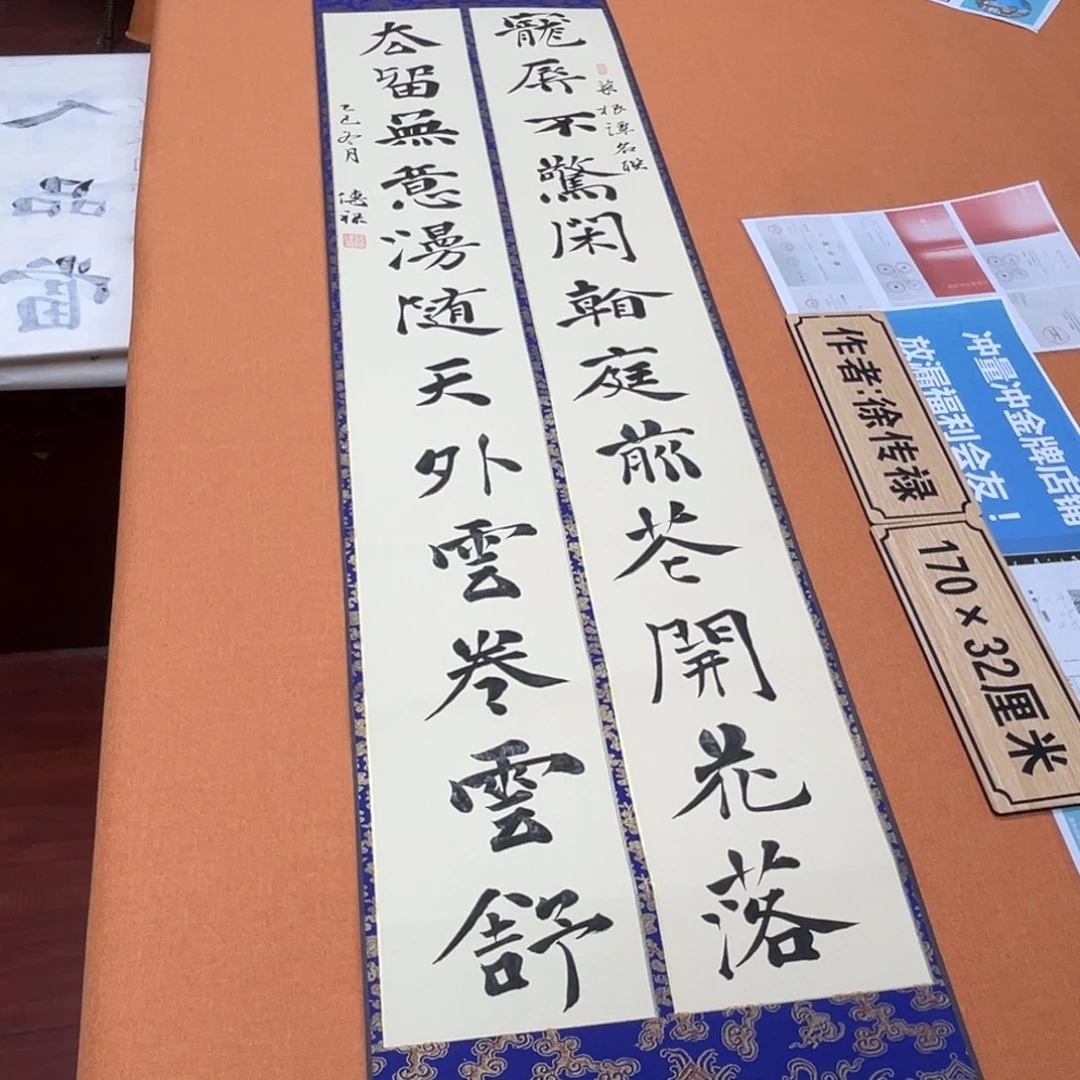 寵辱不驚閑看庭前花開花落
菜根譚名联
去留無意漫随天外雲卷雲舒
乙巳冬月 傳禄
人品
作者:徐传禄
170×32厘米
冲量冲金牌店铺
放漏福利会友！